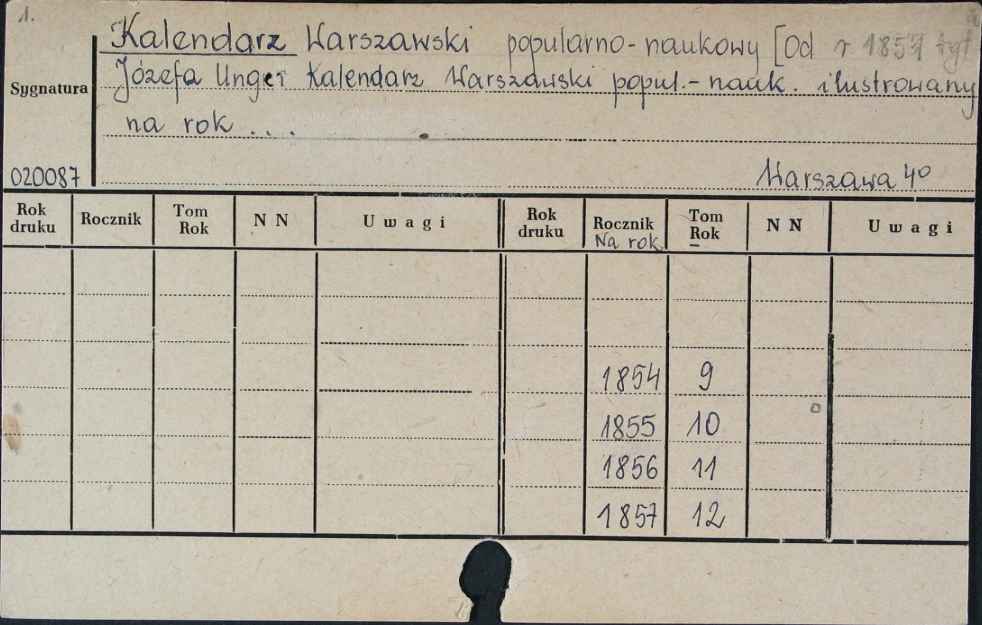 1.
Kalendarz Warszawski popularno-naukowy [Od r 1857 tyt
Józefa Unger Kalendarz Warszawski popul.-nauk. ilustrowany
Sygnatura
na rok ...
020087
Warszawa 4°
Rok druku Rocznik Tom Rok NN Uwagi Rok druku Rocznik Na rok Tom Rok NN Uwagi
1854 9
1855 10
1856 11
1857 12